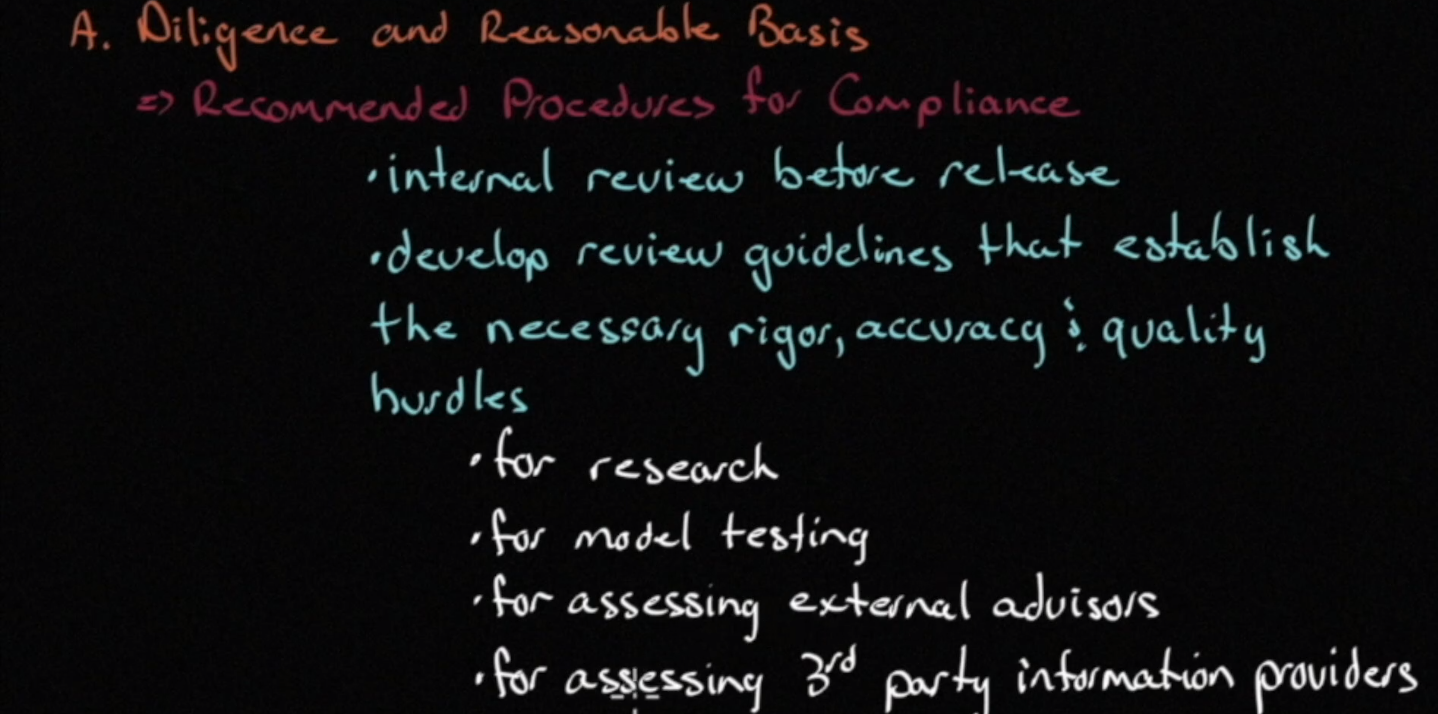 A. Diligence and Reasonable Basis
=> Recommended Procedures for Compliance
• internal review before release
• develop review guidelines that establish
the necessary rigor, accuracy & quality
hurdles
• for research
• for model testing
• for assessing external advisors
• for assessing 3rd party information providers